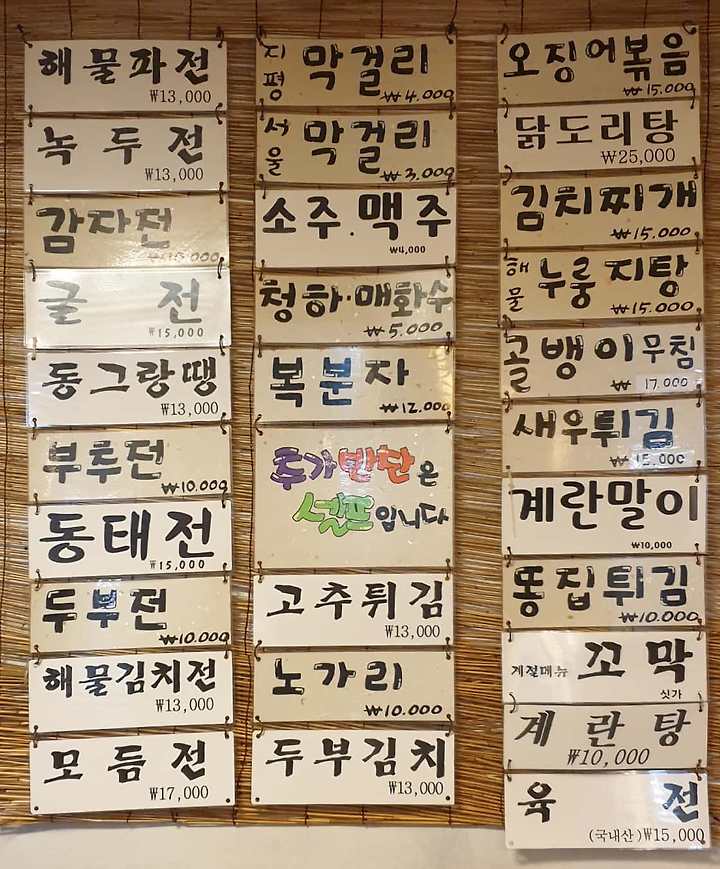 해물파전
₩13,000
녹두전
₩13,000
감자전
굴전
₩15,000
동그랑땡
₩13,000
부추전
₩10,000
동태전
₩15,000
두부전
₩10,000
해물김치전
₩13,000
모듬전
₩17,000
지평 막걸리
₩4,000
서울 막걸리
₩3,000
소주.맥주
₩4,000
청하·매화수
₩5,000
복분자
₩12,000
추가반찬은
셀프입니다
고추튀김
₩13,000
노가리
₩10,000
두부김치
₩13,000
오징어볶음
₩15,000
닭도리탕
₩25,000
김치찌개
₩15,000
해물 누룽지탕
₩15,000
골뱅이무침
₩17,000
새우튀김
₩15,000
계란말이
₩10,000
똥집튀김
₩10,000
계절메뉴 꼬막
싯가
계란탕
₩10,000
육전
(국내산)₩15,000